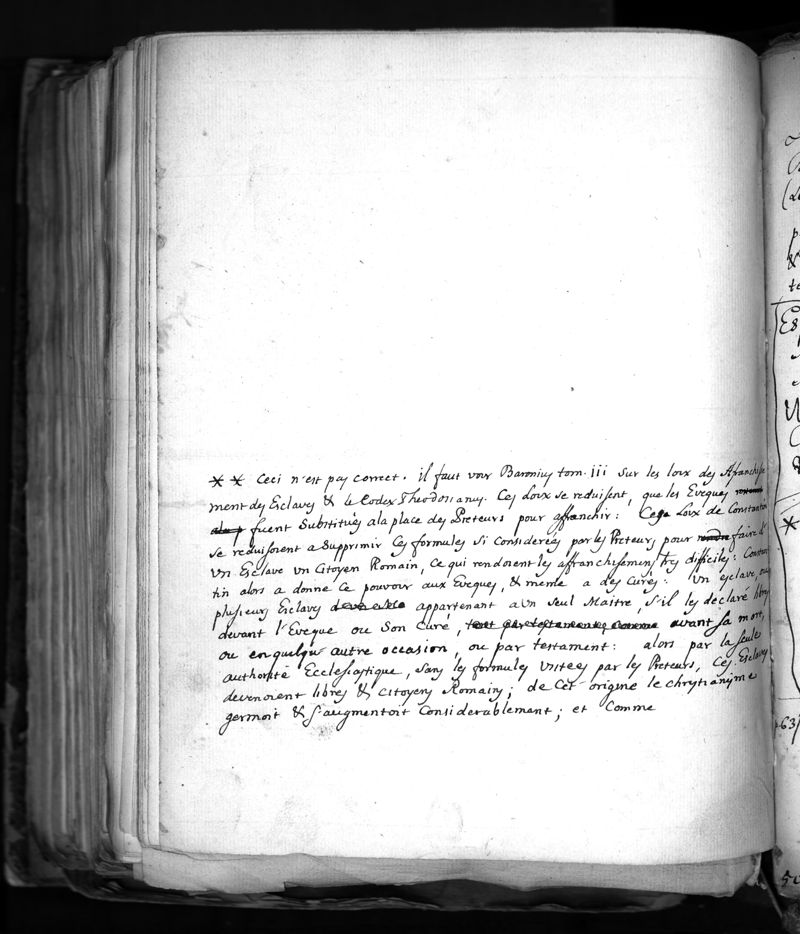 ** Ceci n'est pas correct. il faut voir Baronius tom. iii sur les loix des Afranchisse
ment des Esclaves & le Codex Theodosianus. Ces Loix se reduisent, que les Eveques
furent Substitués a la place des Preteurs pour affranchir: Ces Loix de Constantin
se reduisoient a Supprimer Ces formules Si Considerées par les Preteurs pour faire d'
un Esclave un Citoyen Romain, Ce qui rendoient les affranchisement tres difficiles: Constan
tin alors a donné Ce pouvoir aux Eveques, & meme a des Curés: Un esclave, ou
plusieurs Esclaves appartenant a un Seul Maitre, S'il les declaré libres
devant l'Eveque ou Son Curé, avant sa mort,
ou en quelque autre occasion, ou par testament: alors par la seule
authorité Ecclesiastique, Sans les formules Usitées par les Preteurs, Ces Esclaves
devenoient libres & Citoyens Romains; de Cet origine le chrystianisme
germoit & S'augmentoit Considerablement; et Comme